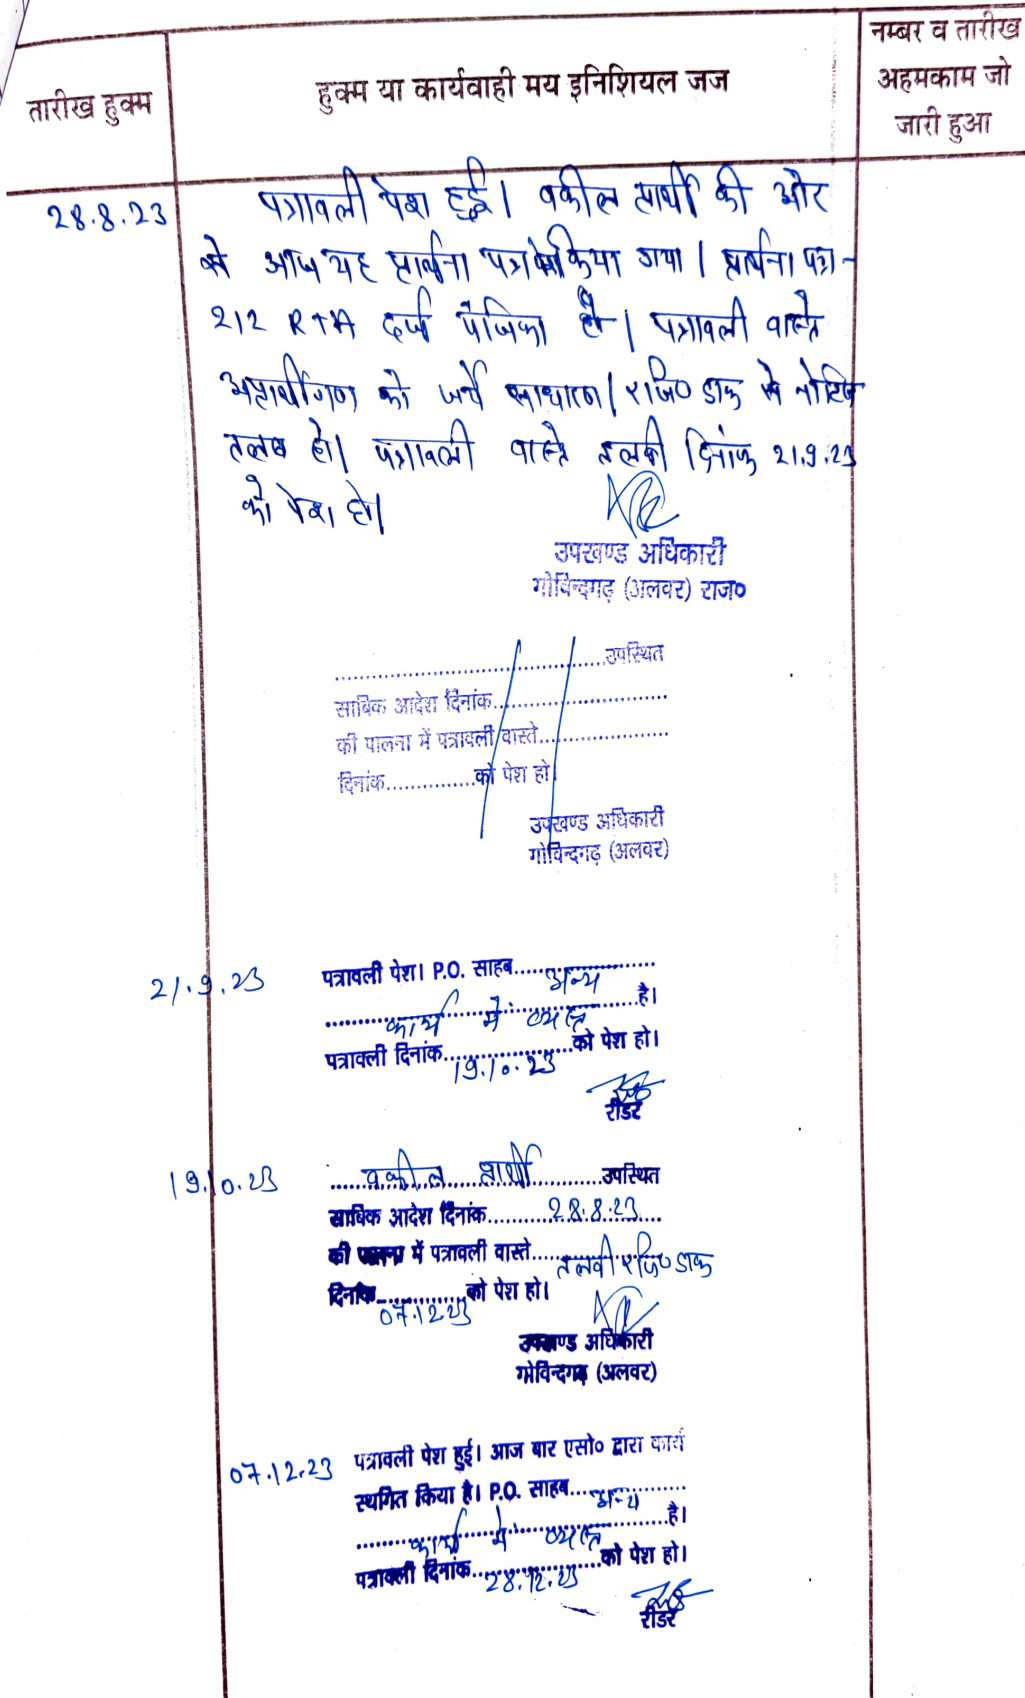 तारीख हुक्म
हुक्म या कार्यवाही मय इनिशियल जज
नम्बर व तारीख
अहमकाम जो
जारी हुआ
28.8.23
पत्रावली पेश हुई। वकील प्रार्थी की और
से आज यह प्रार्थना पत्र पेश किया गया। प्रार्थना पत्र -
212 RTA दर्ज पंजिका हो। पत्रावली वास्ते
अप्रार्थीगण को जर्ये साधारण/रजि० डाक से नोटिस
तलब हो। पत्रावली वास्ते तलबी दिनांक 21.9.23
को पेश हो।
उपखण्ड अधिकारी
गोविन्दगढ़ (अलवर) राज०
..........उपस्थित
साबिक आदेश दिनांक..........
की पालना में पत्रावली वास्ते..........
दिनांक..........को पेश हो
उपखण्ड अधिकारी
गोविन्दगढ़ (अलवर)
21.9.23
पत्रावली पेश। P.O. साहब.....अन्य
कार्य में व्यस्त है।
पत्रावली दिनांक 19.10.23 को पेश हो।
रीडर
19.10.23
वकील प्रार्थी उपस्थित
साबिक आदेश दिनांक 28.8.23
की पालना में पत्रावली वास्ते तलबी रजि० डाक
दिनांक 07.12.23 को पेश हो।
उपखण्ड अधिकारी
गोविन्दगढ़ (अलवर)
07.12.23
पत्रावली पेश हुई। आज बार एसो० द्वारा कार्य
स्थगित किया है। P.O. साहब.....अन्य
कार्य में व्यस्त है।
पत्रावली दिनांक 28.12.23 को पेश हो।
रीडर